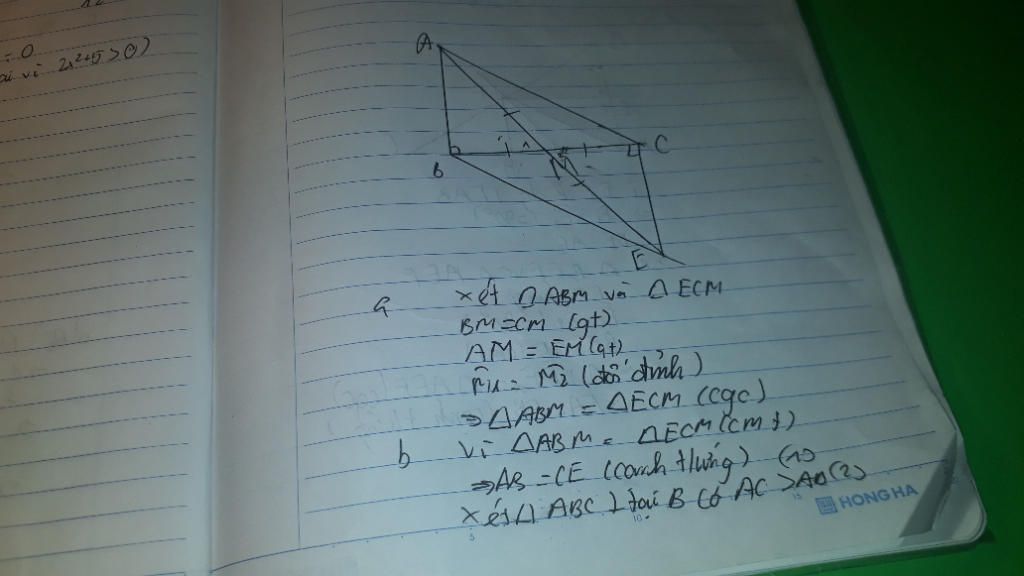 = 0
vì 2x²+5 > 0)
A
B
C
M
E
a xét △ABM và △ECM
BM=CM (gt)
AM = EM (gt)
M̂1 = M̂2 (đối đỉnh)
⇒ △ABM = △ECM (cgc)
b Vì △ABM = △ECM (cmt)
⇒ AB = CE (cạnh t/ứng) (1)
xét △ ABC ⊥ tại B có AC > AB (2)
HONG HA
5
10
15